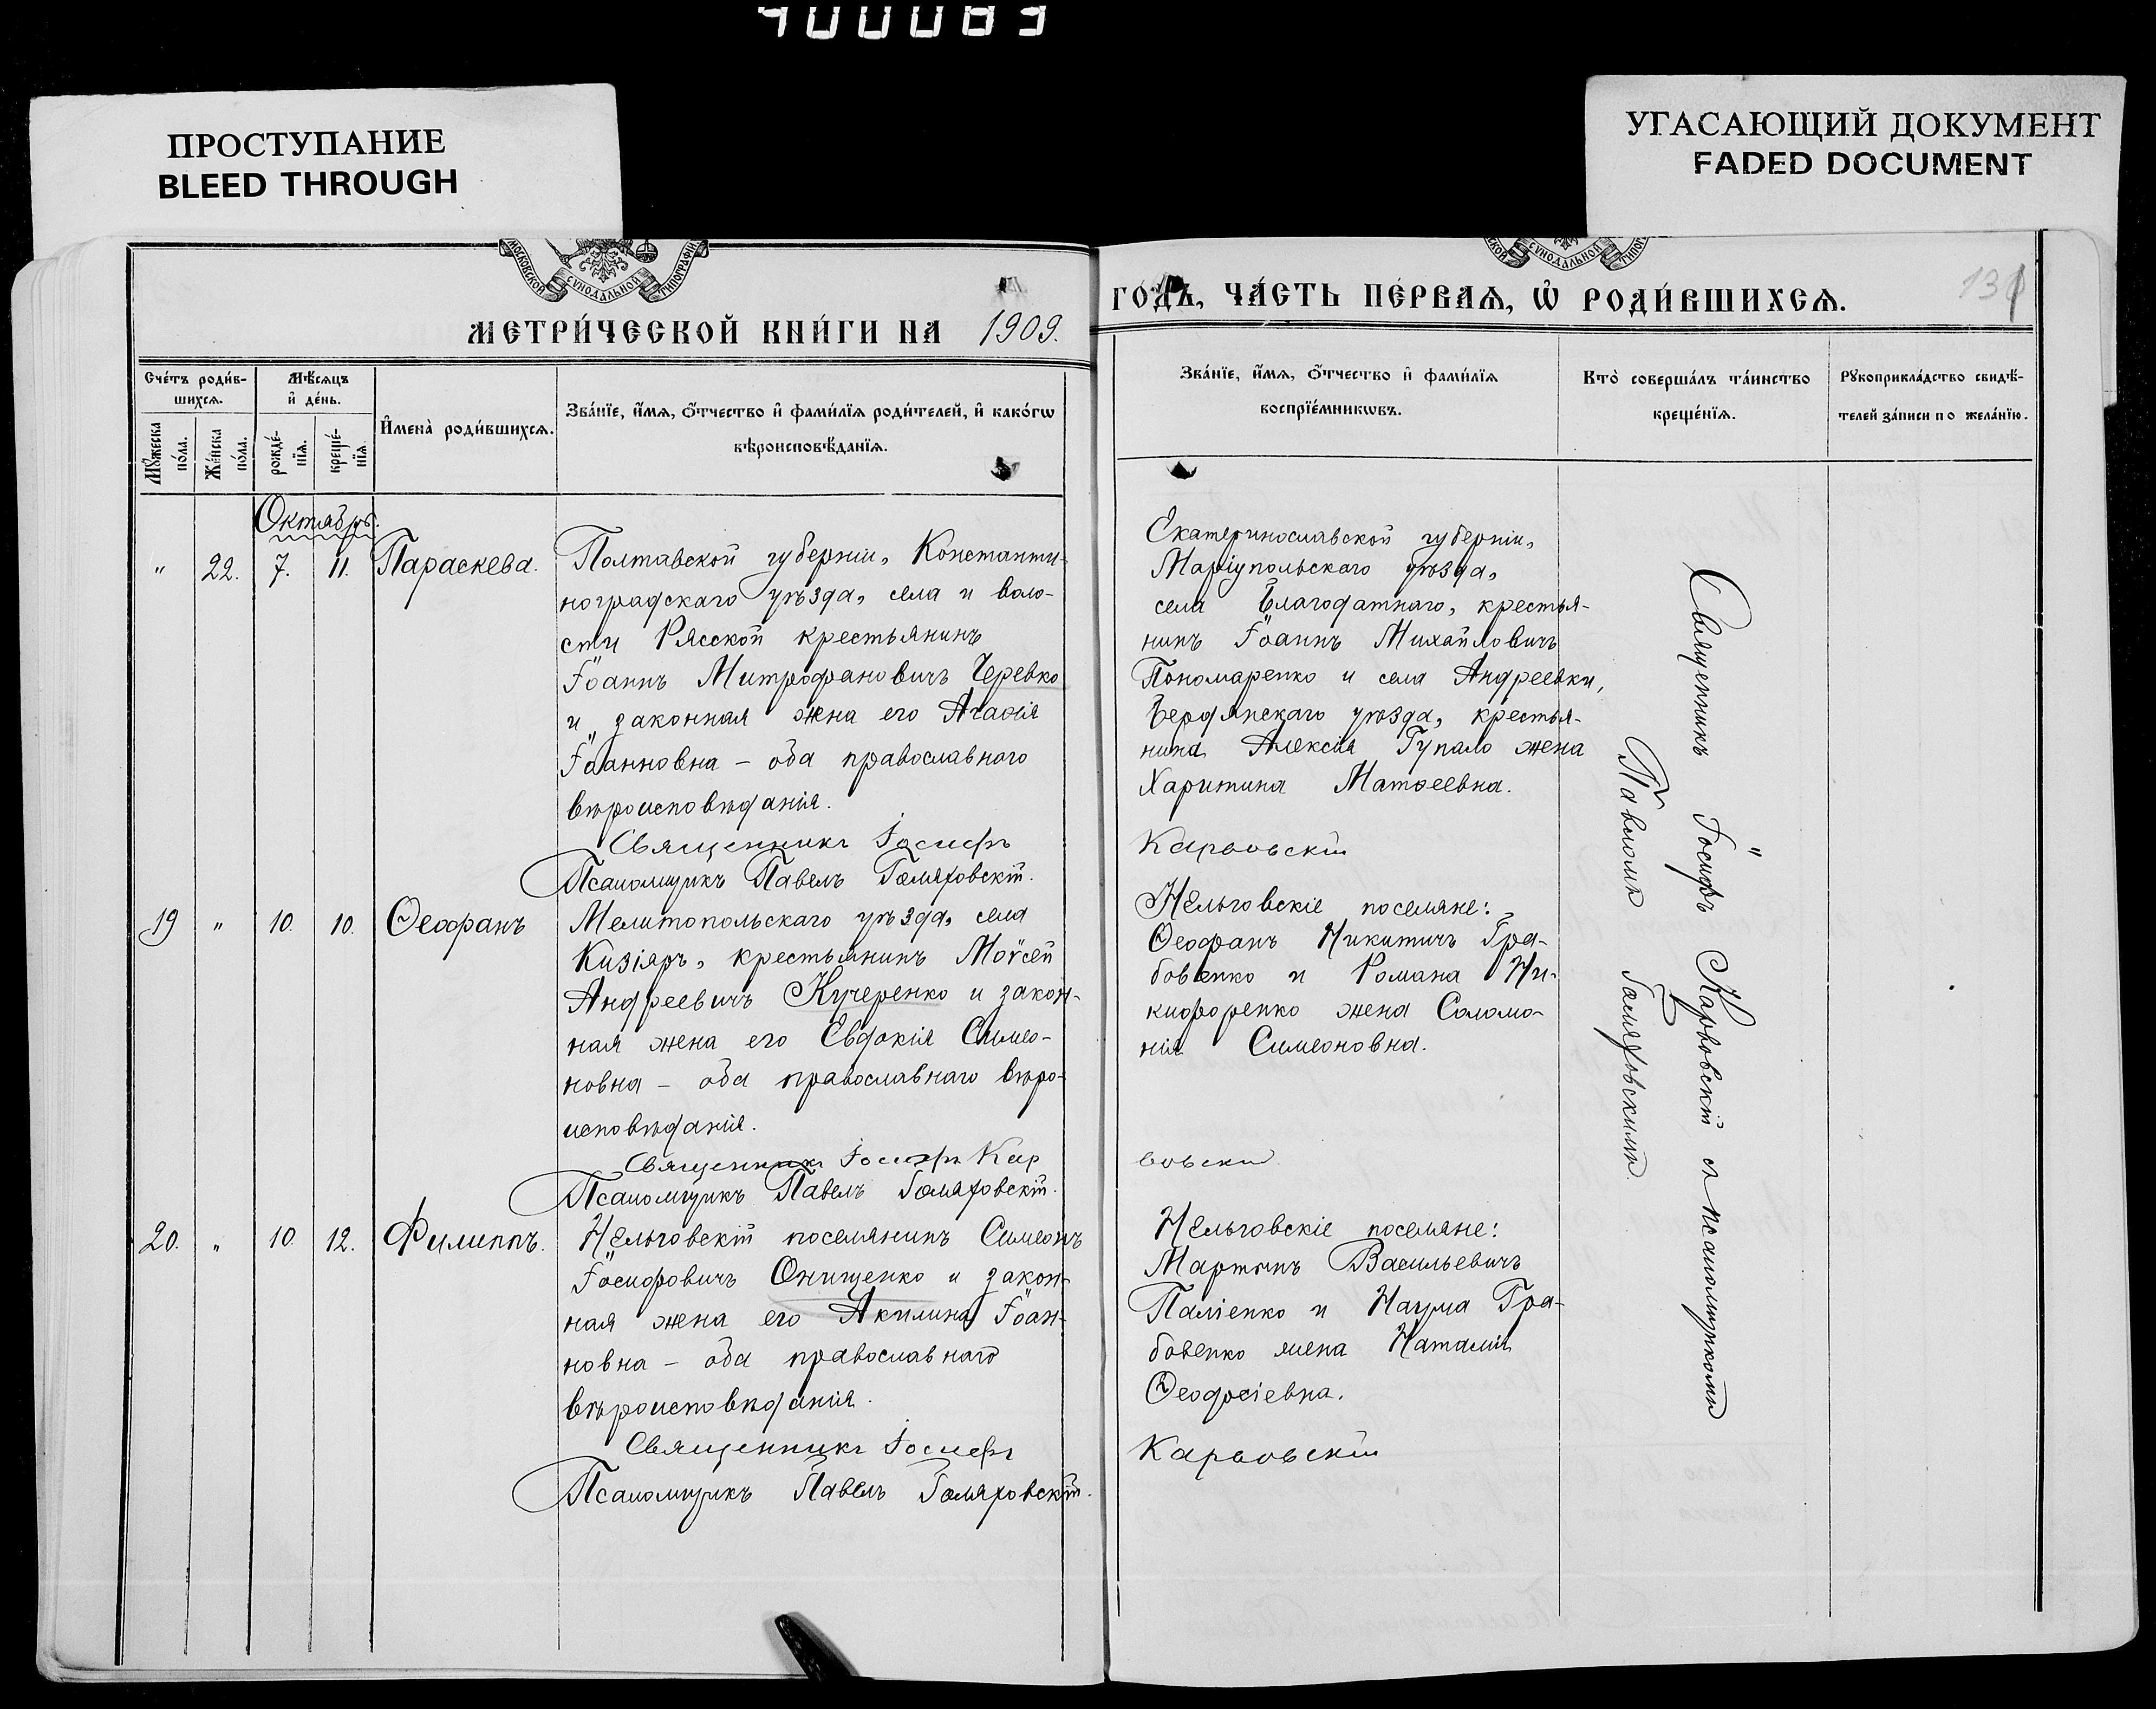 400083
ПРОСТУПАНИЕ
BLEED THROUGH
УГАСАЮЩИЙ ДОКУМЕНТ
FADED DOCUMENT
МОСКОВСКОЙ СѴНОДАЛЬНОЙ ТИПОГРАФІИ
МЕТРИ́ЧЕСКОЙ КНИ́ГИ НА 1909.
ГОДЪ, ЧА́СТЬ ПЕ́РВАѦ, Ѡ҆ РОДИ́ВШИХСѦ.
131
Сче́тъ роди́в-
шихсѧ.
Мѣ́сѧцъ
и҆ де́нь.
И҆мена̀ роди́вшихсѧ.
Зва́нїе, и҆́мѧ, ѻ҆́тчество и҆ фами́лїѧ роди́телей, и҆ како́гѡ
вѣроисповѣ́данїѧ.
Мꙋ́жеска
по́ла.
Же́нска
по́ла.
рожде́-
нїѧ.
креще́-
нїѧ.
Зва́нїе, и҆́мѧ, ѻ҆́тчество и҆ фами́лїѧ
воспрїе́мникѡвъ.
Кто̀ соверша́лъ та́инство
креще́нїѧ.
Рꙋкоприкла́дство свидѣ́-
телей за́писи по жела́нїю.
Октябрь.
" 22. 7. 11. Параскева.
Полтавской губерніи, Константи-
ноградскаго уѣзда, села и воло-
сти Рясской крестьянинъ
Іоаннъ Митрофановичъ Черевко
и законная жена его Агаѳія
Іоанновна – оба православнаго
вѣроисповѣданія.
Священникъ Іосифъ
Псаломщикъ Павелъ Голяховскій.
Екатеринославской губерніи,
Маріупольскаго уѣзда,
села Благодатнаго, крестья-
нинъ Іоаннъ Михайловичъ
Пономаренко и села Андреевки,
Бердянскаго уѣзда, крестья-
нина Алексія Гупало жена
Харитина Матѳеевна.
Карвовскій
19 " 10. 10. Ѳеофанъ
Мелитопольскаго уѣзда, села
Кизіяръ, крестьянинъ Моѵсей
Андреевичъ Кучеренко и закон-
ная жена его Евдокія Симео-
новна – оба православнаго вѣро-
исповѣданія.
Священникъ Іосифъ Кар
Псаломщикъ Павелъ Голяховскій.
Нельговскіе поселяне:
Ѳеофанъ Никитичъ Гра-
бовенко и Романа Ни-
кифоренко жена Соломо-
нія Симеоновна.
вовскій
20. " 10. 12. Филиппъ.
Нельговскій поселянинъ Симеонъ
Іосифовичъ Онищенко и закон-
ная жена его Акилина Іоан-
новна – оба православнаго
вѣроисповѣданія.
Священникъ Іосифъ
Псаломщикъ Павелъ Голяховскій.
Нельговскіе поселяне:
Мартинъ Васильевичъ
Паліенко и Наума Гра-
бовенко жена Наталія
Ѳеодосіевна.
Карвовскій
Священникъ Іосифъ Карвовскій съ псаломщикомъ
Павломъ Голяховскимъ.